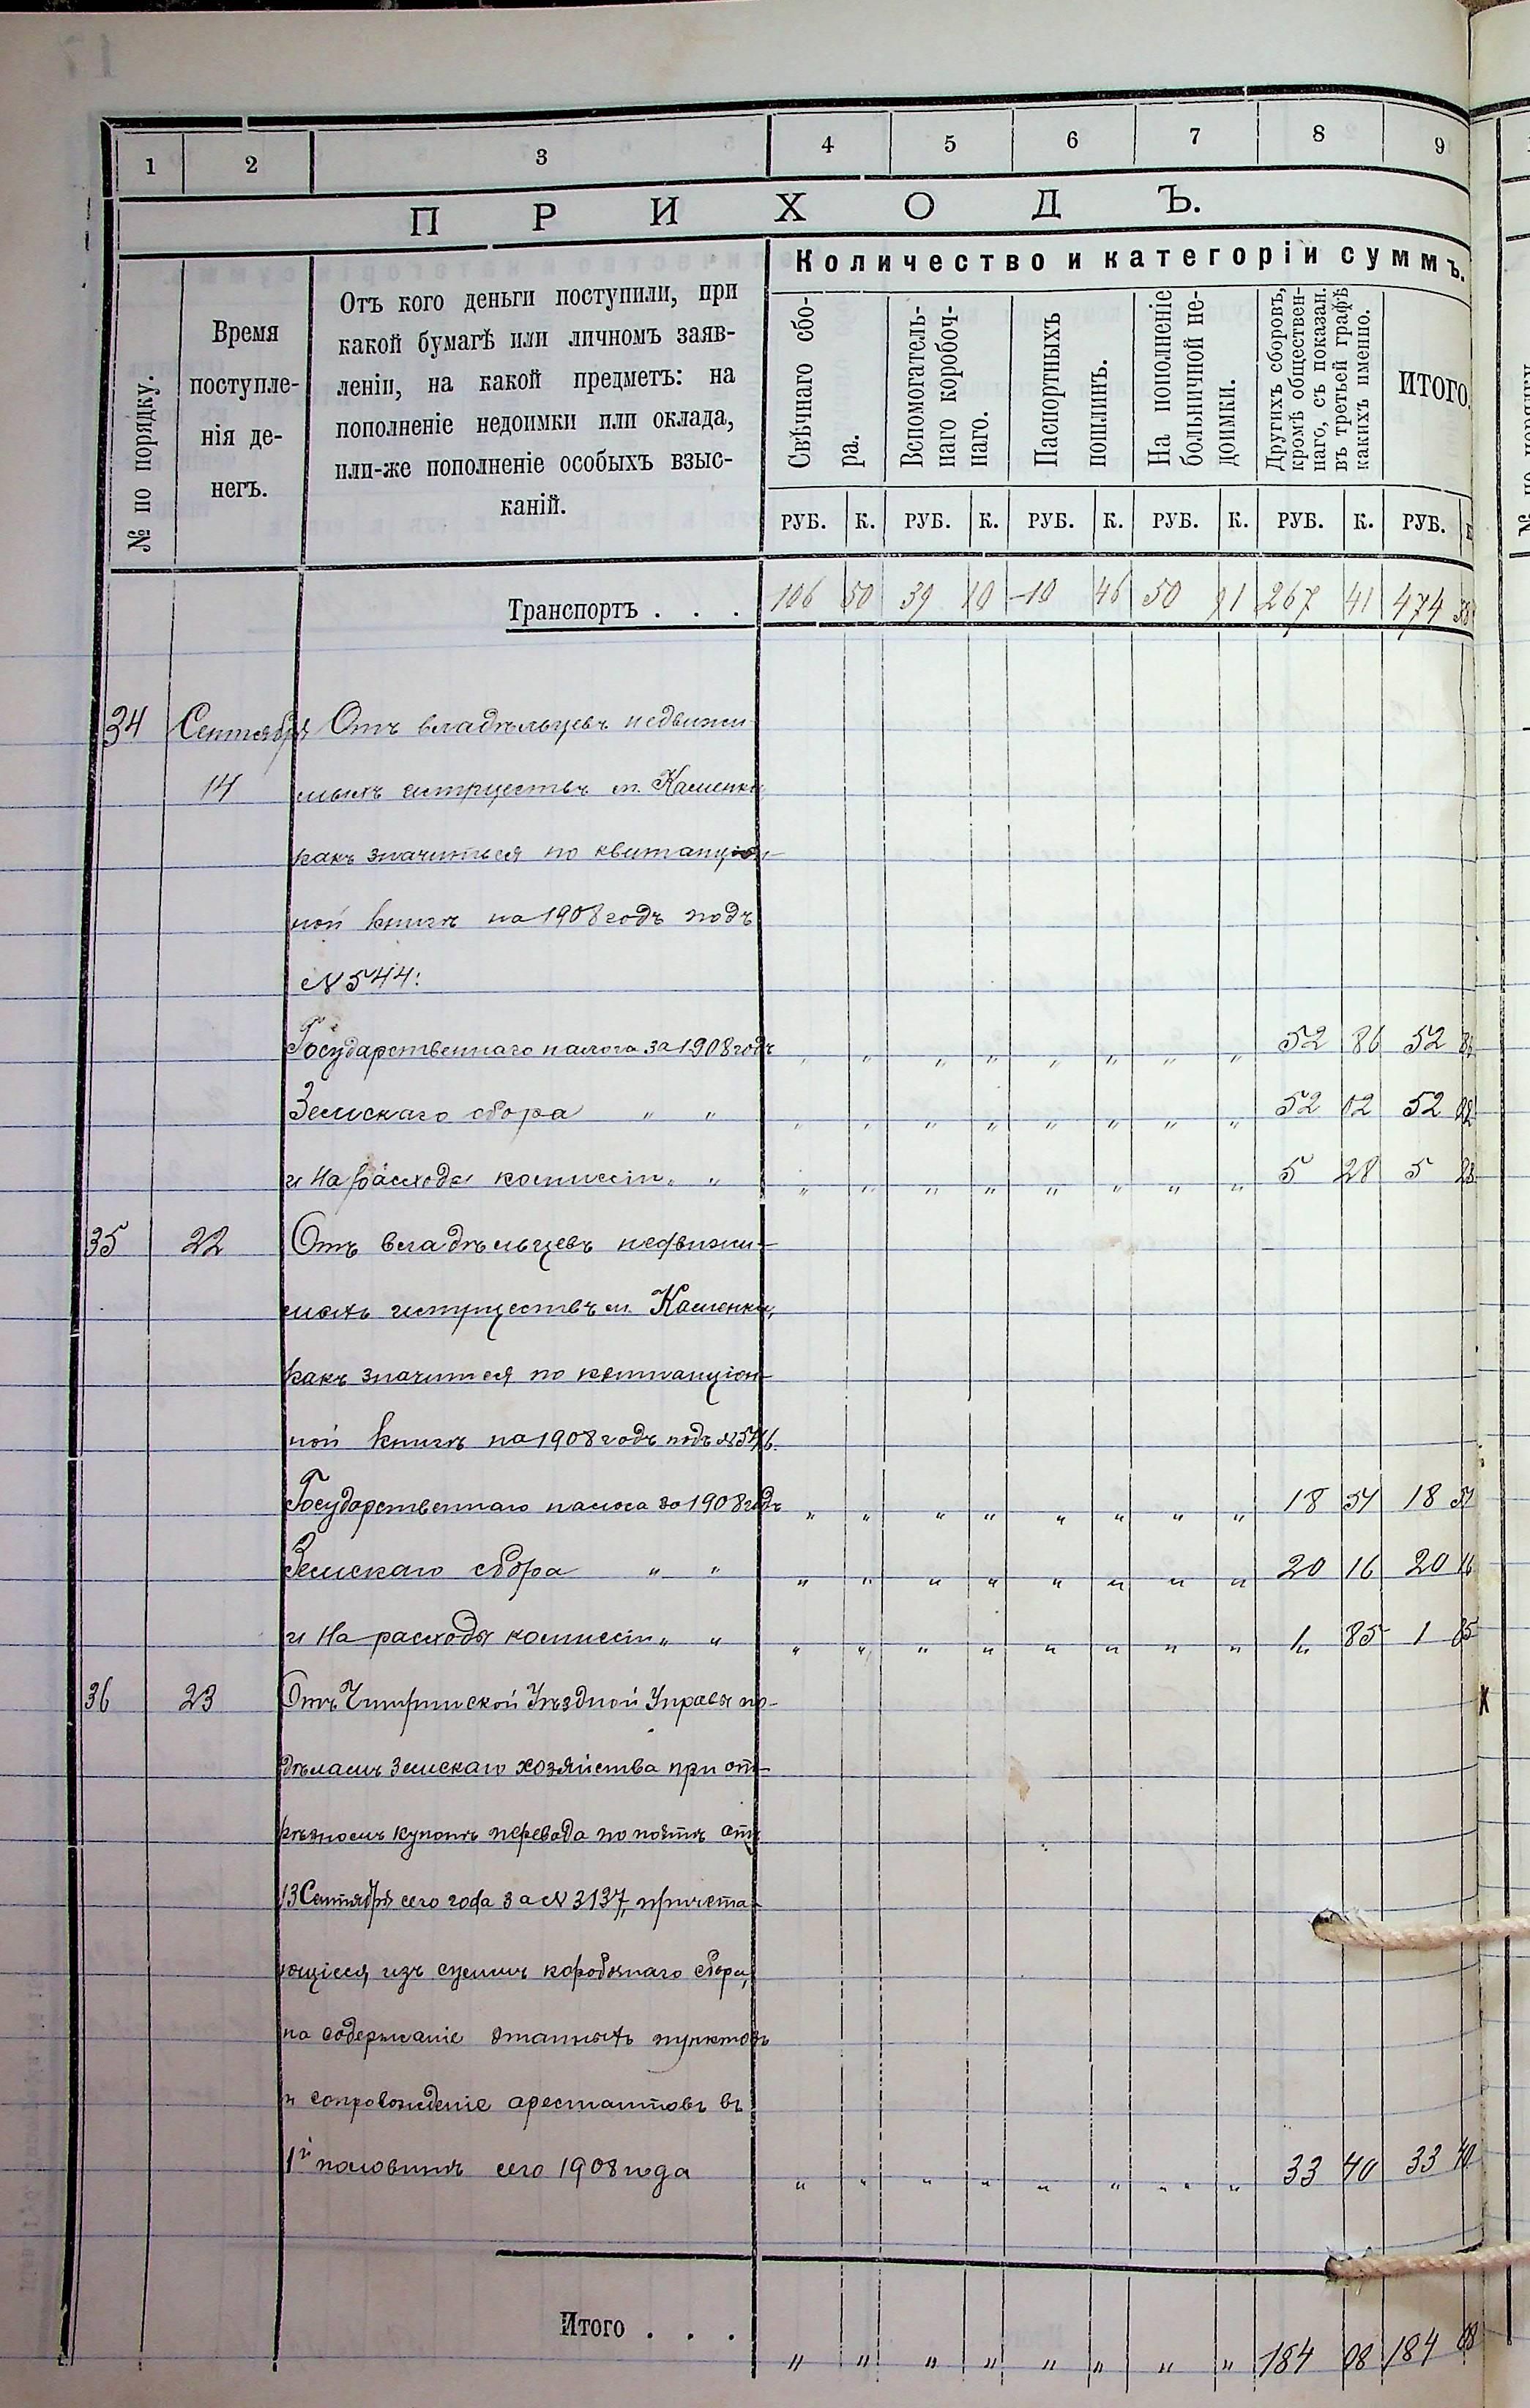 1 2 3 4 5 6 7 8 9
ПРИХОДЪ.
№ по порядку.
Время поступле-
нія де-
негъ.
Отъ кого деньги поступили, при
какой бумагѣ или личномъ заяв-
леніи, на какой предметъ: на
пополненіе недоимки или оклада,
или-же пополненіе особыхъ взыс-
каній.
Количество и категоріи суммъ.
Свѣчнаго сбо-
ра.
Вспомогатель-
наго коробоч-
наго.
Паспортныхъ
пошлинъ.
На пополненіе
больничной не-
доимки.
Другихъ сборовъ,
кромѣ обществен-
наго, съ показан.
въ третьей графѣ
какихъ именно.
ИТОГО.
РУБ. К. РУБ. К. РУБ. К. РУБ. К. РУБ. К. РУБ.
Транспортъ . . . 106 50 39 10 10 46 50 91 267 41 474 38
34 Сентября Отъ владѣльцевъ недвижи
14 мыхъ имуществъ м. Каменки
какъ значиться по квитанціон-
ной книгѣ на 1908 годъ подъ
№ 544:
Государственнаго налога за 1908 годъ " " " " " " " " 52 86 52 86
Земскаго сбора " " " " " " " " " " 52 02 52 02
и На расходы комиссіи " " " " " " " " " " 5 28 5 28
35 22 Отъ владѣльцевъ недвижи-
мыхъ имуществъ м. Каменки,
какъ значится по квитанціон-
ной книгѣ на 1908 годъ подъ № 546.
Государственнаго налога за 1908 годъ " " " " " " " " 18 51 18 51
Земскаго сбора " " " " " " " " " " 20 16 20 16
и На расходы комиссіи " " " " " " " " " " 1 85 1 85
36 23 Отъ Чигиринской Уѣздной Управы по-
дѣламъ Земскаго хозяйства при от-
рѣзномъ купонѣ перевода по почтѣ отъ
13 Сентября сего года за № 3137, причета-
ющіеся, изъ суммъ коробочнаго сбора,
на содержаніе этапныхъ пунктовъ
и сопровожденіе арестантовъ въ
1й половинѣ сего 1908 года " " " " " " " " 33 40 33 40
Итого . . . " " " " " " " " 184 08 184 08